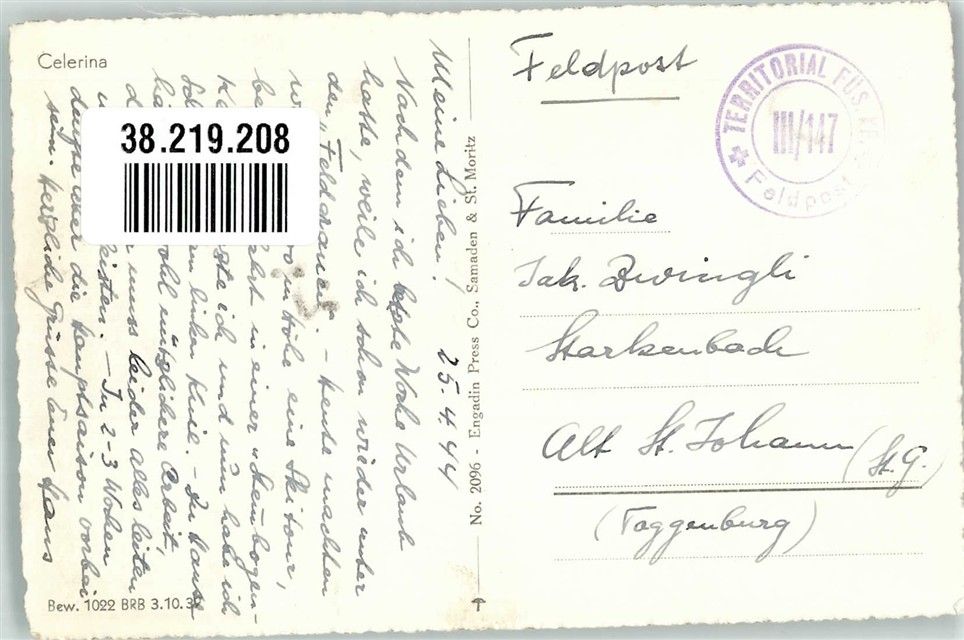 Celerina
38.219.208
Meine Lieben! 25.4.44
Nachdem ich letzte Woche Urlaub
hatte, weile ich schon wieder unter
den „Feldgrauen". - Heute machten
in Höhe eine Skitour,
in einer
ich und nun habe ich
linken Knie. - Zu Hause
nützlichere Arbeit,
muss leider alles leiten
leisten. - In 2-3 Wochen
dürfte aber die Hauptsaison vorbei
sein. Herzliche Grüsse Euer Hans
Bew. 1022 BRB 3.10.3
No. 2096 - Engadin Press Co., Samaden & St. Moritz
Feldpost
TERRITORIAL FÜS. K
III/147
Feldpost
Familie
Jak. Zwingli
Starkenbach
Alt St. Johann (St. G.)
(Toggenburg)